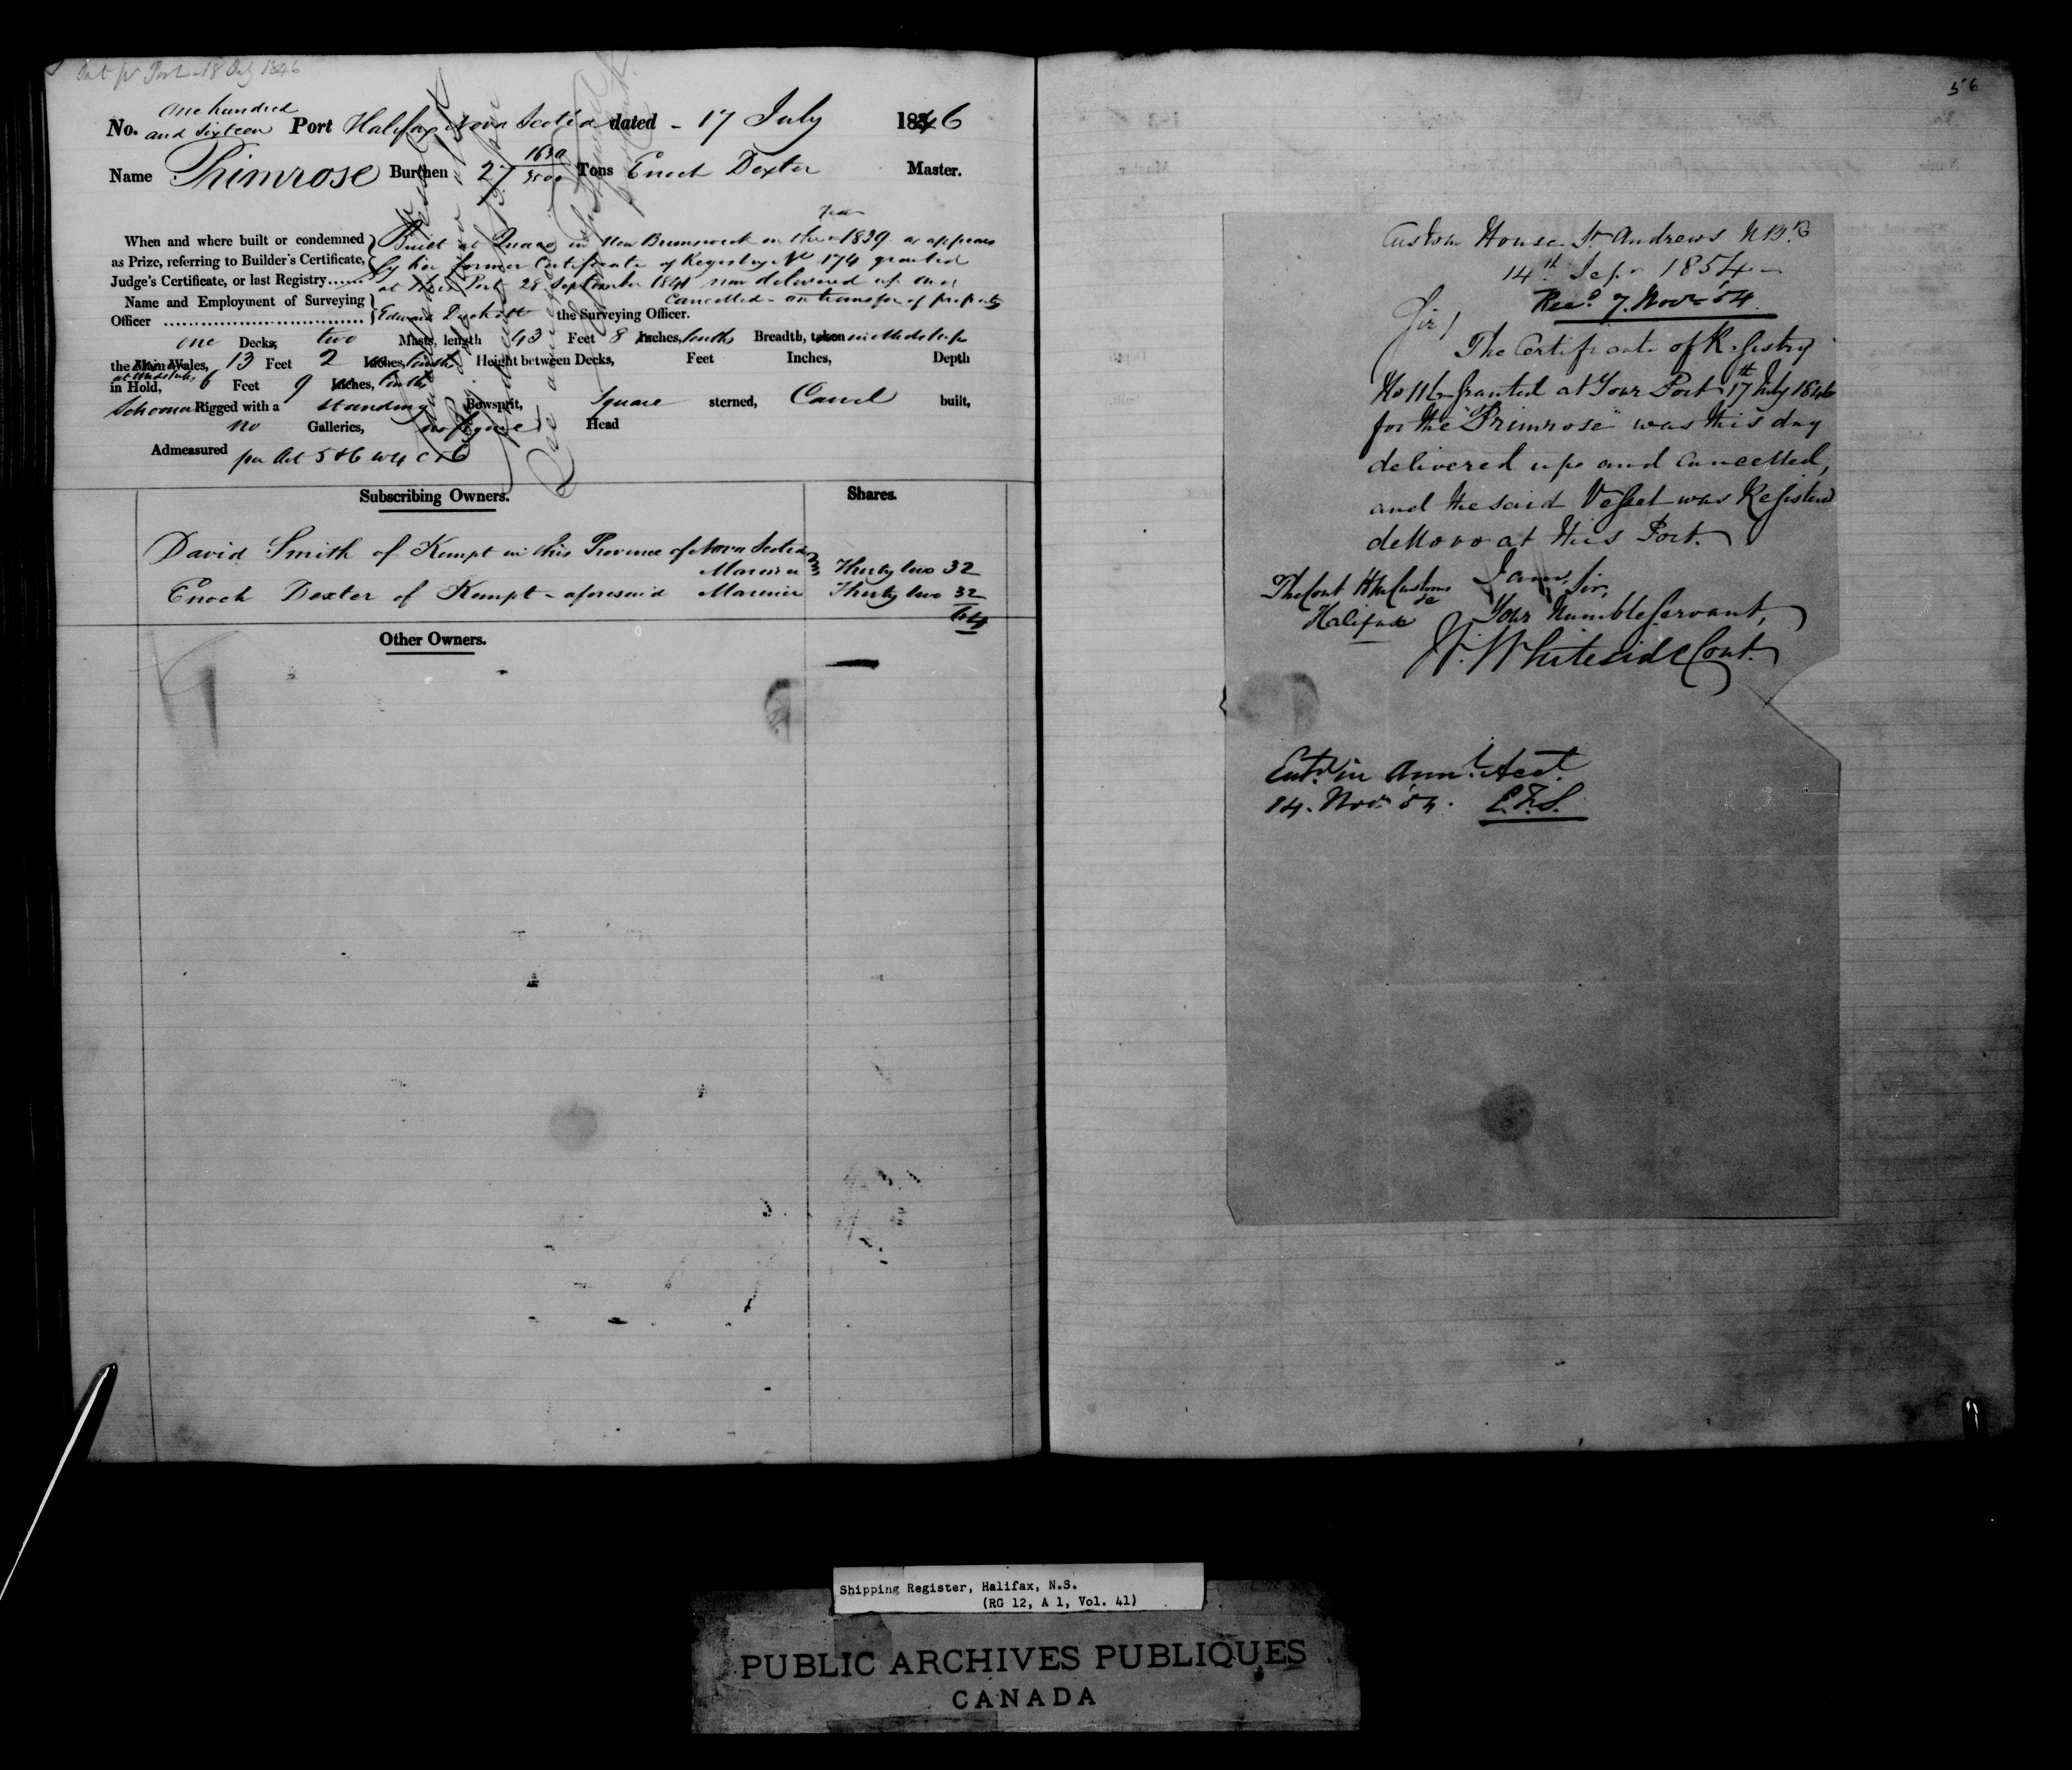 56
No. One hundred and Sixteen Port Halifax Nova Scotia dated - 17 July 1846
Name Primrose Burthen 27 1630/3500 Tons Enoch Dexter Master.
When and where built or condemned
as Prize, referring to Builder's Certificate,
Judge's Certificate, or last Registry......
Built at Quaco in New Brunswick in the Year 1839 as appears
by her former Certificate of Registry No 174 granted
at this Port 28 September 1841 now delivered up and
Cancelled - on transfer of property
Name and Employment of Surveying
Officer ................................ Edward Duckett the Surveying Officer.
one Decks, two Masts, length 43 Feet 8 Inches, tenths Breadth, taken amidships
the Main Wales, 13 Feet 2 Inches, tenths Height between Decks, Feet Inches, Depth
at Midships
in Hold, 6 Feet 9 Inches, tenths
Schooner Rigged with a standing Bowsprit, Square sterned, Carvel built,
no Galleries, no figure Head
Admeasured per Act 5 & 6 W 4 C 56
Subscribing Owners. Shares.
David Smith of Kempt in this Province of Nova Scotia
Mariner Thirty two 32
Enoch Dexter of Kempt - aforesaid Mariner Thirty two 32
64
Other Owners.
Custom House St Andrews N B
14th Sepr 1854
Recd. 7. Novr '54.
Sir/
The Certificate of Registry
No 116 Granted at Your Port 17th July 1846
for the "Primrose" was this day
delivered up and Cancelled,
and the said Vessel was Registered
deNovo at this Port.
I am, Sir,
The Cont H M Customs
&c
Halifax
Your Humble Servant,
W. Whiteside Cont.
Entd. in Annl. Acct.
14. Novr '54. E.F.S.
Shipping Register, Halifax, N.S.
(RG 12, A 1, Vol. 41)
PUBLIC ARCHIVES PUBLIQUES
CANADA